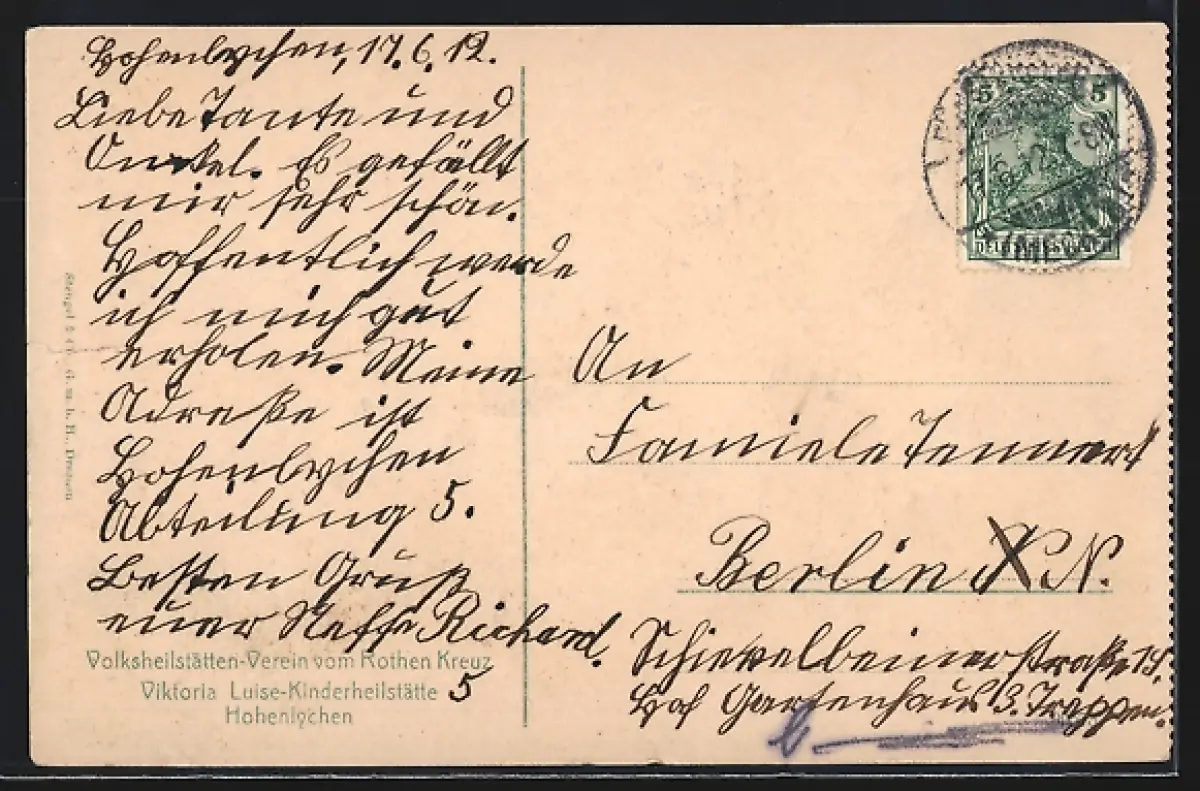 Hohenlychen, 17.6.12.
Liebe Tante und
Onkel. Es gefällt
mir sehr schön.
Hoffentlich werde
ich mich gut
erholen. Meine
Adreße ist
Hohenlychen
Abteilung 5.
Besten Gruß
euer Neffe Richard.
Volksheilstätten-Verein vom Rothen Kreuz
Viktoria Luise-Kinderheilstätte 5
Hohenlychen
Stengel & Co., G. m. b. H., Dresden
5 5
An
Familie Tennert
Berlin N.
Schievelbeinerstraße
Hof Gartenhaus 3. Treppen.